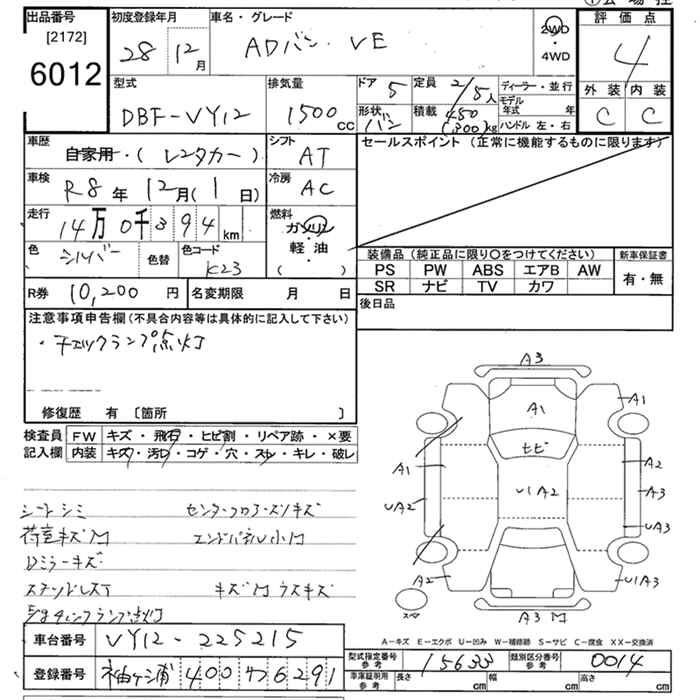 出品番号 初度登録年月 車名・グレード 評価点
[2172] 28 12月 ADバン VE 2WD ・4WD 4
6012 外装 内装
型式 排気量 ドア 5 定員 2/5人 ディーラー・並行 C C
DBF-VY12 1500cc 形状 バン 積載 450(300)kg モデル年式 年 ハンドル 左・右
車歴 自家用・(レンタカー) シフト AT セールスポイント(正常に機能するものに限ります)
車検 R8年 12月(1日) 冷房 AC
走行 14万0千394km 燃料 ガソリン
色 シルバー 色替 色コード K23 軽・油
( )
装備品(純正品に限り○をつけてください) 新車保証書
PS PW ABS エアB AW 有・無
SR ナビ TV カワ
R券 10,200円 名変期限 月 日 後日品
注意事項申告欄(不具合内容等は具体的に記入して下さい)
・チェックランプ点灯
修復歴 有 〔箇所 〕
検査員 FW キズ・飛石・ヒビ割・リペア跡・×要
記入欄 内装 キズ・汚レ・コゲ・穴・スレ・キレ・破レ
シートシミ センターコンソールキズ
荷室キズM エンドパネル小M
Dミラーキズ
スタッドレスT キズMウスキズ
A3
A1
A1
ヒビ
A1
A2
UA2
U1A2
A3
UA3
A2
U1A3
スペア
A3 M
A-キズ E-エクボ U-凹み W-補修跡 S-サビ C-腐食 XX-交換済
車台番号 VY12-225215
登録番号 袖ヶ浦 400 912
型式指定番号 参考 15633 類別区分番号 参考 0014
車庫証明用 参考 長さ cm 幅 cm 高さ cm